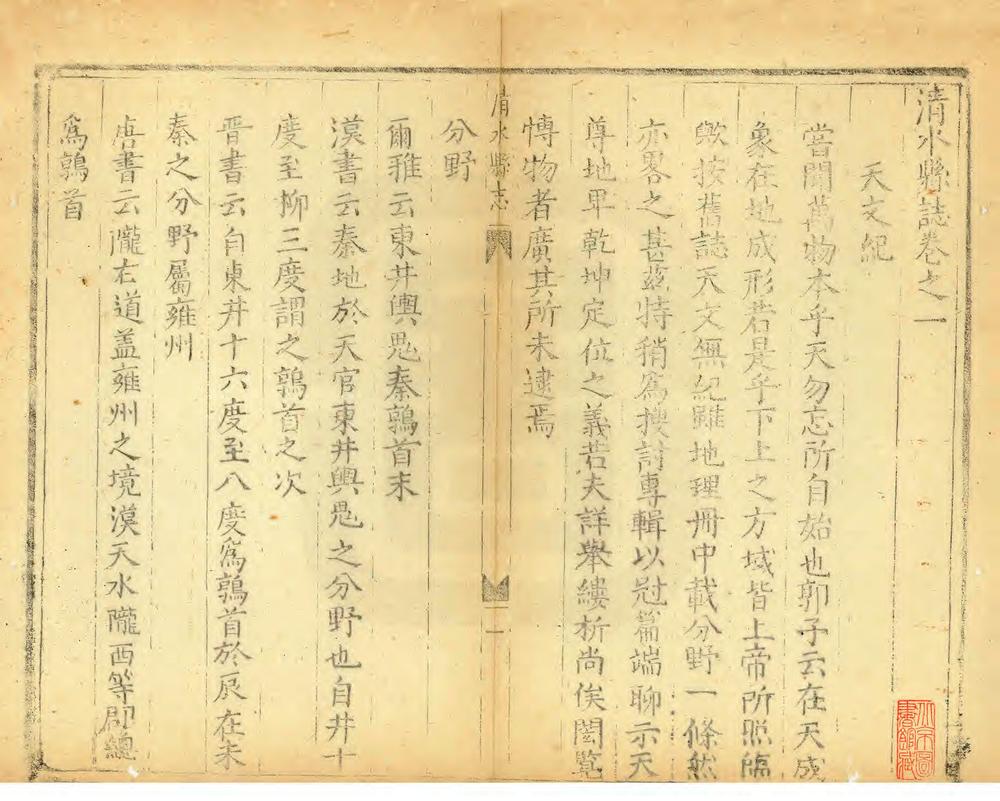 清水縣誌卷之一
天文紀
嘗聞萬物本乎天勿忘所自始也郭子云在天成
象在地成形若是乎下上之方域皆上帝所照臨
歟按舊誌天文無紀雖地理冊中載分野一條然
亦畧之甚茲特稍爲搜討專輯以冠篇端聊示天
尊地卑乾坤定位之義若夫詳舉縷析尚俟閎覧
愽物者廣其所未逮焉
清水縣志
一
分野
爾雅云東井輿鬼秦鶉首末
漢書云秦地於天官東井輿鬼之分野也自井十
度至柳三度謂之鶉首之次
晋書云自東井十六度至八度爲鶉首於辰在未
秦之分野屬雍州
唐書云隴右道盖雍州之境漢天水隴西等郡總
爲鶉首